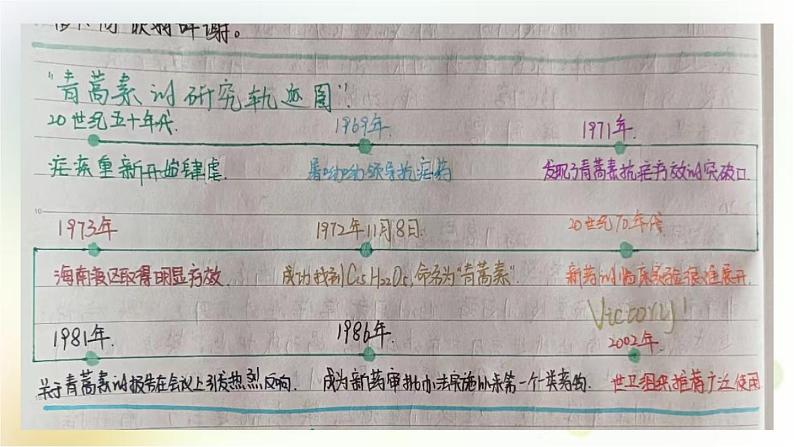 获得许谢。
"青蒿素的研究轨迹图"
20世纪五十年代. 1969年. 1971年.
疟疾重新开始肆虐. 屠呦呦领导抗疟药 发现了青蒿素抗疟疗效的突破口.
1973年 1972年11月8日. 20世纪70年代.
海南疫区取得明显疗效. 成功找到C15H22O5,命名为"青蒿素" 新药的临床实验很难展开.
Victory!
1981年. 1986年. 2002年.
关于青蒿素的报告在会议上引发热烈反响. 成为新药审批办法实施以来第一个一类新药. 世卫组织推荐广泛使用